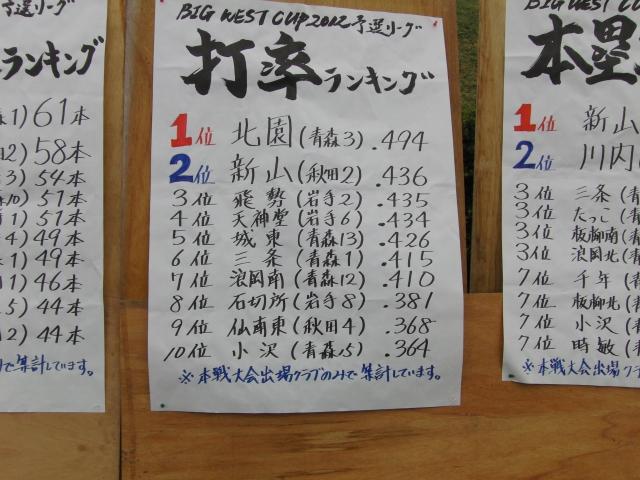 予選リーグ
ランキング
1) 61本
2) 58本
3) 54本
10) 51本
1) 51本
4) 49本
1) 49本
1) 46本
5) 44本
2) 44本
で集計しています。
BIG WEST CUP 2012 予選リーグ
打率ランキング
1位 北園(青森3) .494
2位 新山(秋田2) .436
3位 飛勢(岩手2) .435
4位 天神堂(岩手6) .434
5位 城東(青森13) .426
6位 三条(青森1) .415
7位 浪岡南(青森12) .410
8位 石切所(岩手8) .381
9位 仙南東(秋田4) .368
10位 小沢(青森15) .364
※本戦大会出場クラブのみで集計しています。
BIG WEST CU
本塁
1位 新山
2位 川内
3位 三条(青
3位 たっこ(青
3位 板柳南(青
3位 浪岡北(青
7位 千年(青
7位 板柳北(青
7位 小沢(青
7位 時敏(青
※本戦大会出場クラ